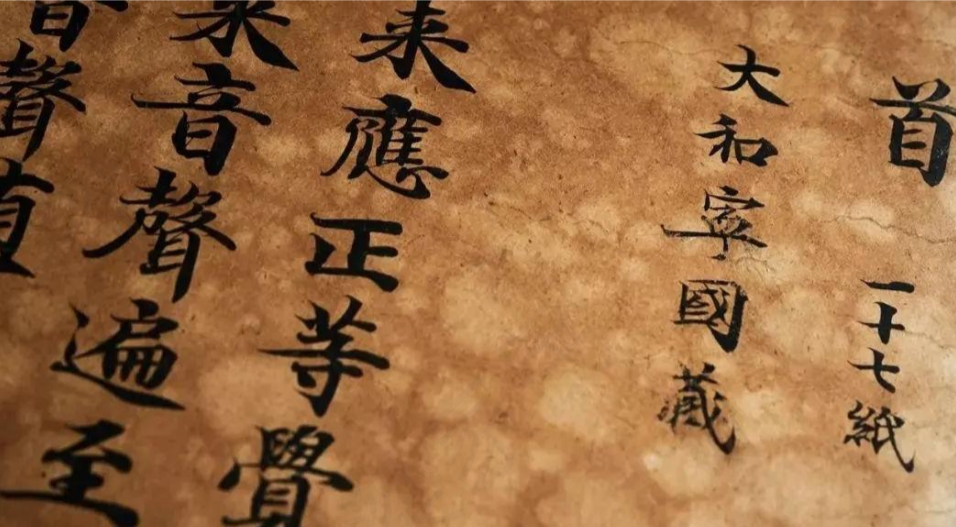 首 一十七紙
大和寧國藏
来應正等覺
音聲遍至
聲